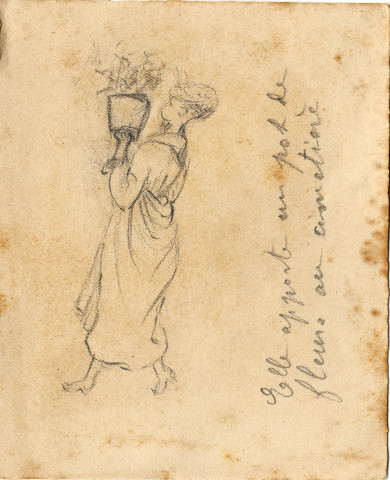 Elle apporte un pot de
fleurs au cimetière